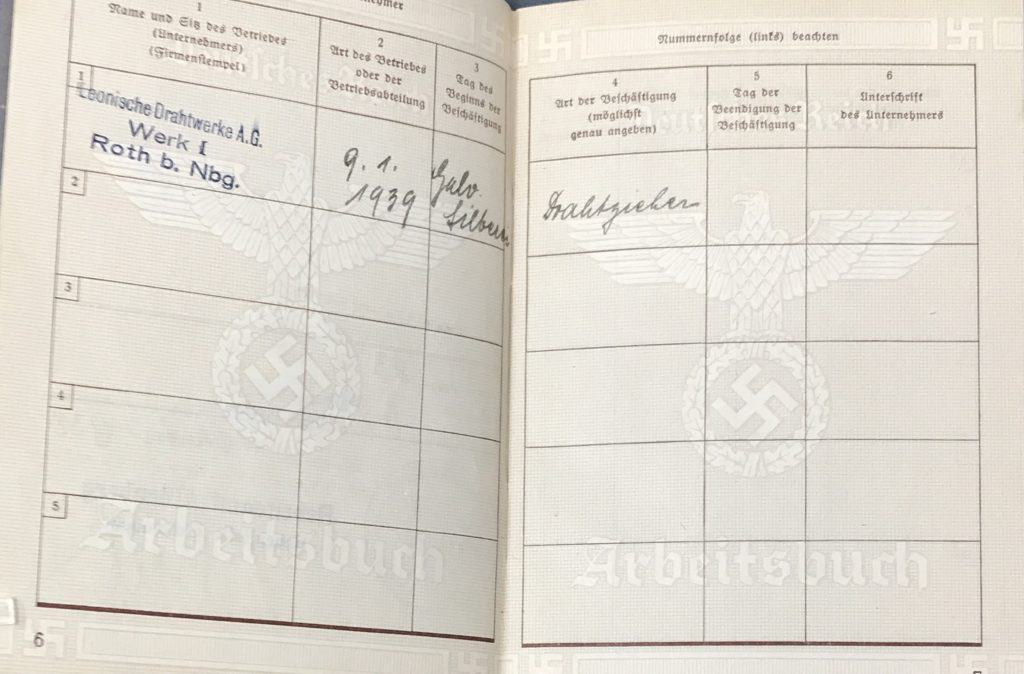 nehmer
1
Name und Sitz des Betriebes
(Unternehmers)
(Firmenstempel)
2
Art des Betriebes
oder der
Betriebsabteilung
3
Tag des
Beginns der
Beschäftigung
1
Leonische Drahtwerke A.G.
Werk I
Roth b. Nbg.
9. 1.
1939
Galv.
2
3
4
5
Arbeitsbuch
6
Nummernfolge (links) beachten
4
Art der Beschäftigung
(möglichst
genau angeben)
5
Tag der
Beendigung der
Beschäftigung
6
Unterschrift
des Unternehmers
Deutsches Reich
Drahtzieher
Arbeitsbuch